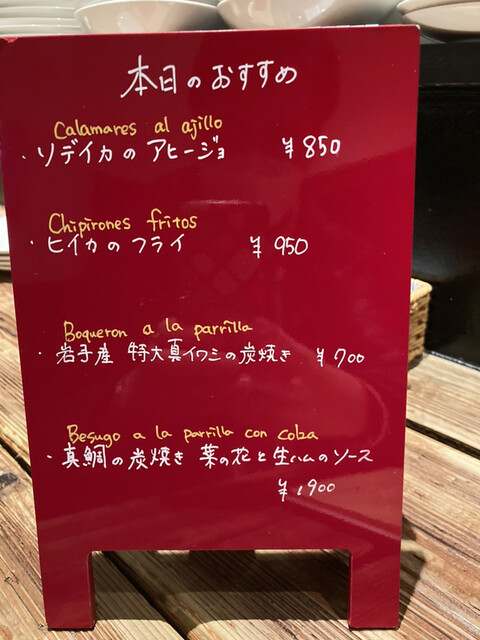 本日のおすすめ
Calamares al ajillo
・ソデイカの アヒージョ ¥850
Chipirones fritos
・ヒイカのフライ ¥950
Boqueron a la parrilla
・岩手産 特大真イワシの炭焼き ¥700
Besugo a la parrilla con colza
・真鯛の炭焼き 菜の花と生ハムのソース
¥1900